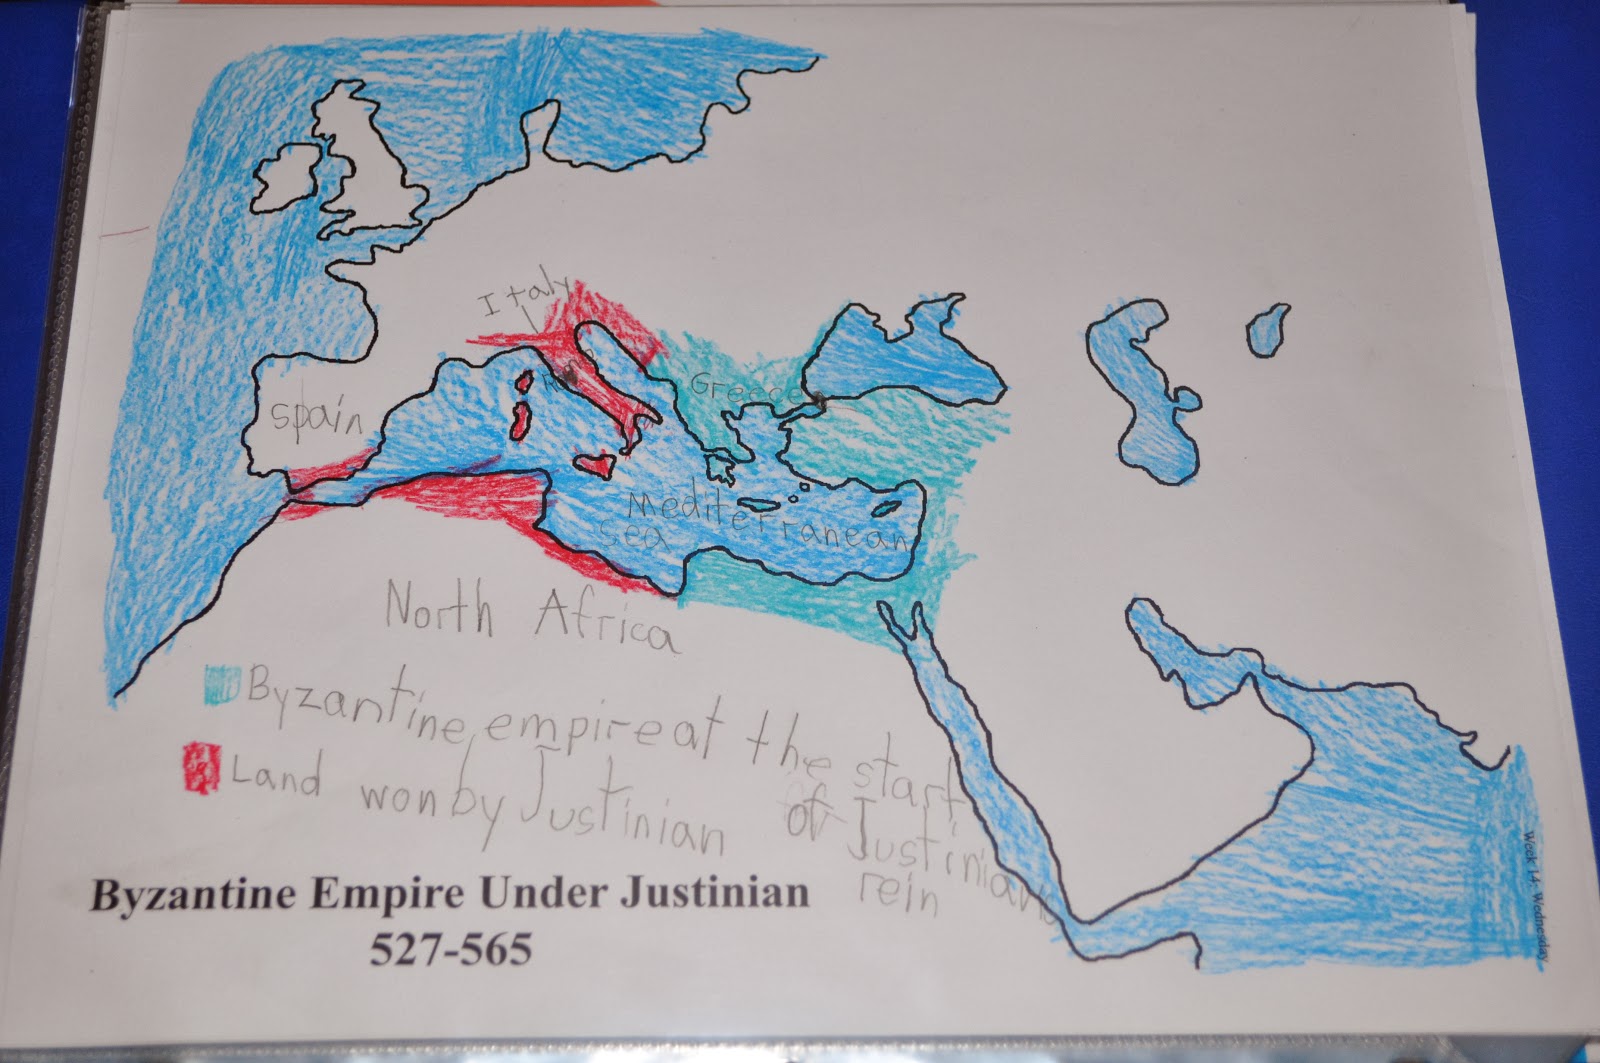 Italy
Rome
Greece
spain
Mediterranean
Sea
North Africa
Byzantine empire at the start
of Justinians
rein
Land won by Justinian
Byzantine Empire Under Justinian
527-565
Week 14 - Wednesday